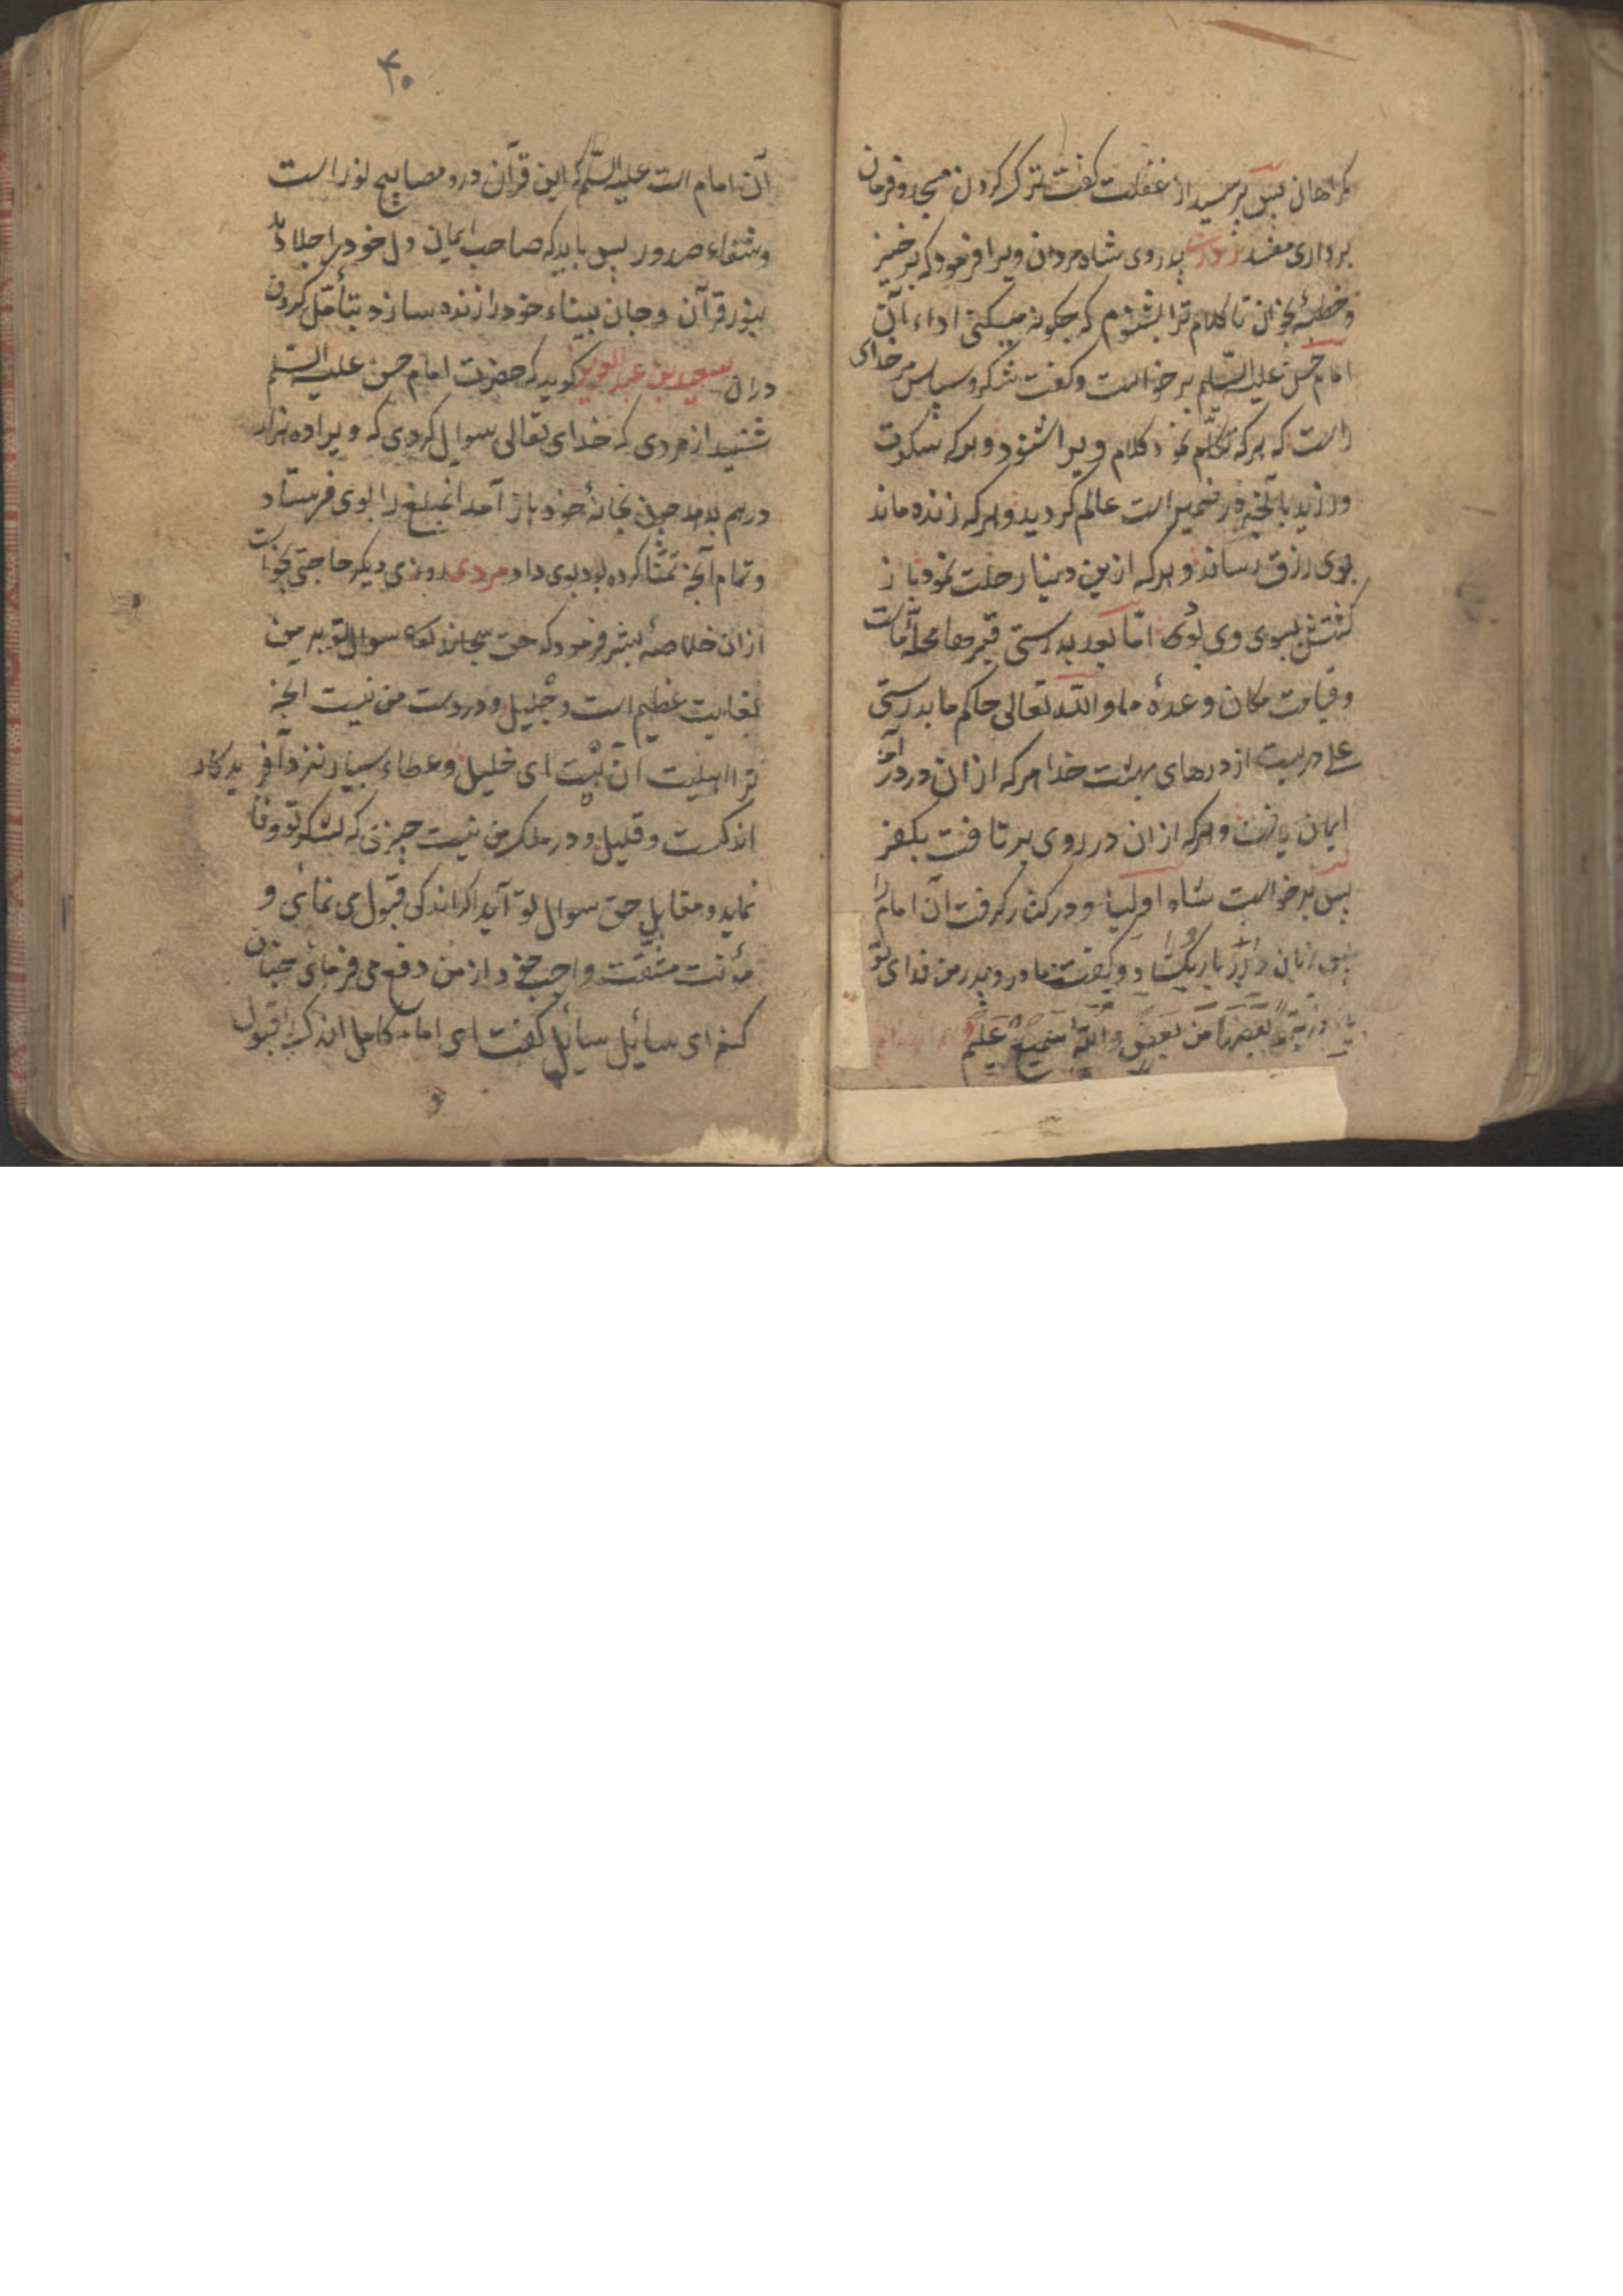 کمراهان پس پرسید از غفلت کفت ترک کردن مسجد و فرمان
برداری مفسد روزی شاه مردان ویرا فرمود که برخیز
و خطبهٔ بخوان تا کلام ترا بشنوم که چکونه میکنی اداء آن
امام حسن علیه السّلم برخواست و کفت شکر و سپاس مر خدای
راست که هرکه تکلّم نمود کلام ویرا شنود و هرکه سکوت
ورزید بآنچه در ضمیر است عالم کردید و هرکه زنده ماند
بوی رزق رساند و هرکه ازین دینا رحلت نمود باز
کشتش بسوی وی بود امّا بعد بدرستی قبرها محلّه ماست
و قیامت مکان وعدهٔ ما و اللّه تعالی حاکم ما بدرستی
علی دریست از درهای بهشت خدا هرکه از ان در درآمد
ایمان یافت و هرکه از ان در روی برتافت بکفر
پس برخواست شاه اولیا و در کنار کرفت آن امام را
پس زبان کشاد و کفت مادر و پدر من فدای تو
باد ذریّةً بعضها من بعض و اللّه سمیع علیم
۴۰
آن امام است علیه السّلم که این قرآن درو مصابیح نور است
و شفاء صدور پس باید که صاحب ایمان دل خود را جلا دهد
بنور قرآن و جان بیناء خود را زنده سازد بتأمّل کردن
در ان سعید بن عبد العزیز کوید که حضرت امام حسن علیه السّلم
شنید از مردی که خدای تعالی سوال کردی که ویرا ده هزار
درهم بدهد چون بخانهٔ خود باز آمد انمبلغ را بوی فرستاد
و تمام آنچه تمنّا کرده بود بوی داد مردی روزی دیکر حاجتی بخواست
از ان خلاصهٔ بشر فرمود که حق سبحانه سوال تو بر من
بغایت عظیم است و جلیل و در دست من نیست انچه
ترا اهلیت ان هست ای خلیل و عطاء بسیار نزد آفریدکار
اندکست و قلیل و در ملک من نیست چیزی که بشکر تو وفا
نماید و مقابل حق سوال تو آید اکر اندکی قبول می نمائی و
مؤنت مشقّت واجب خود از من دفع می فرمائی چنان
کنم ای سائل سائل کفت ای امام کامل اندک را قبول